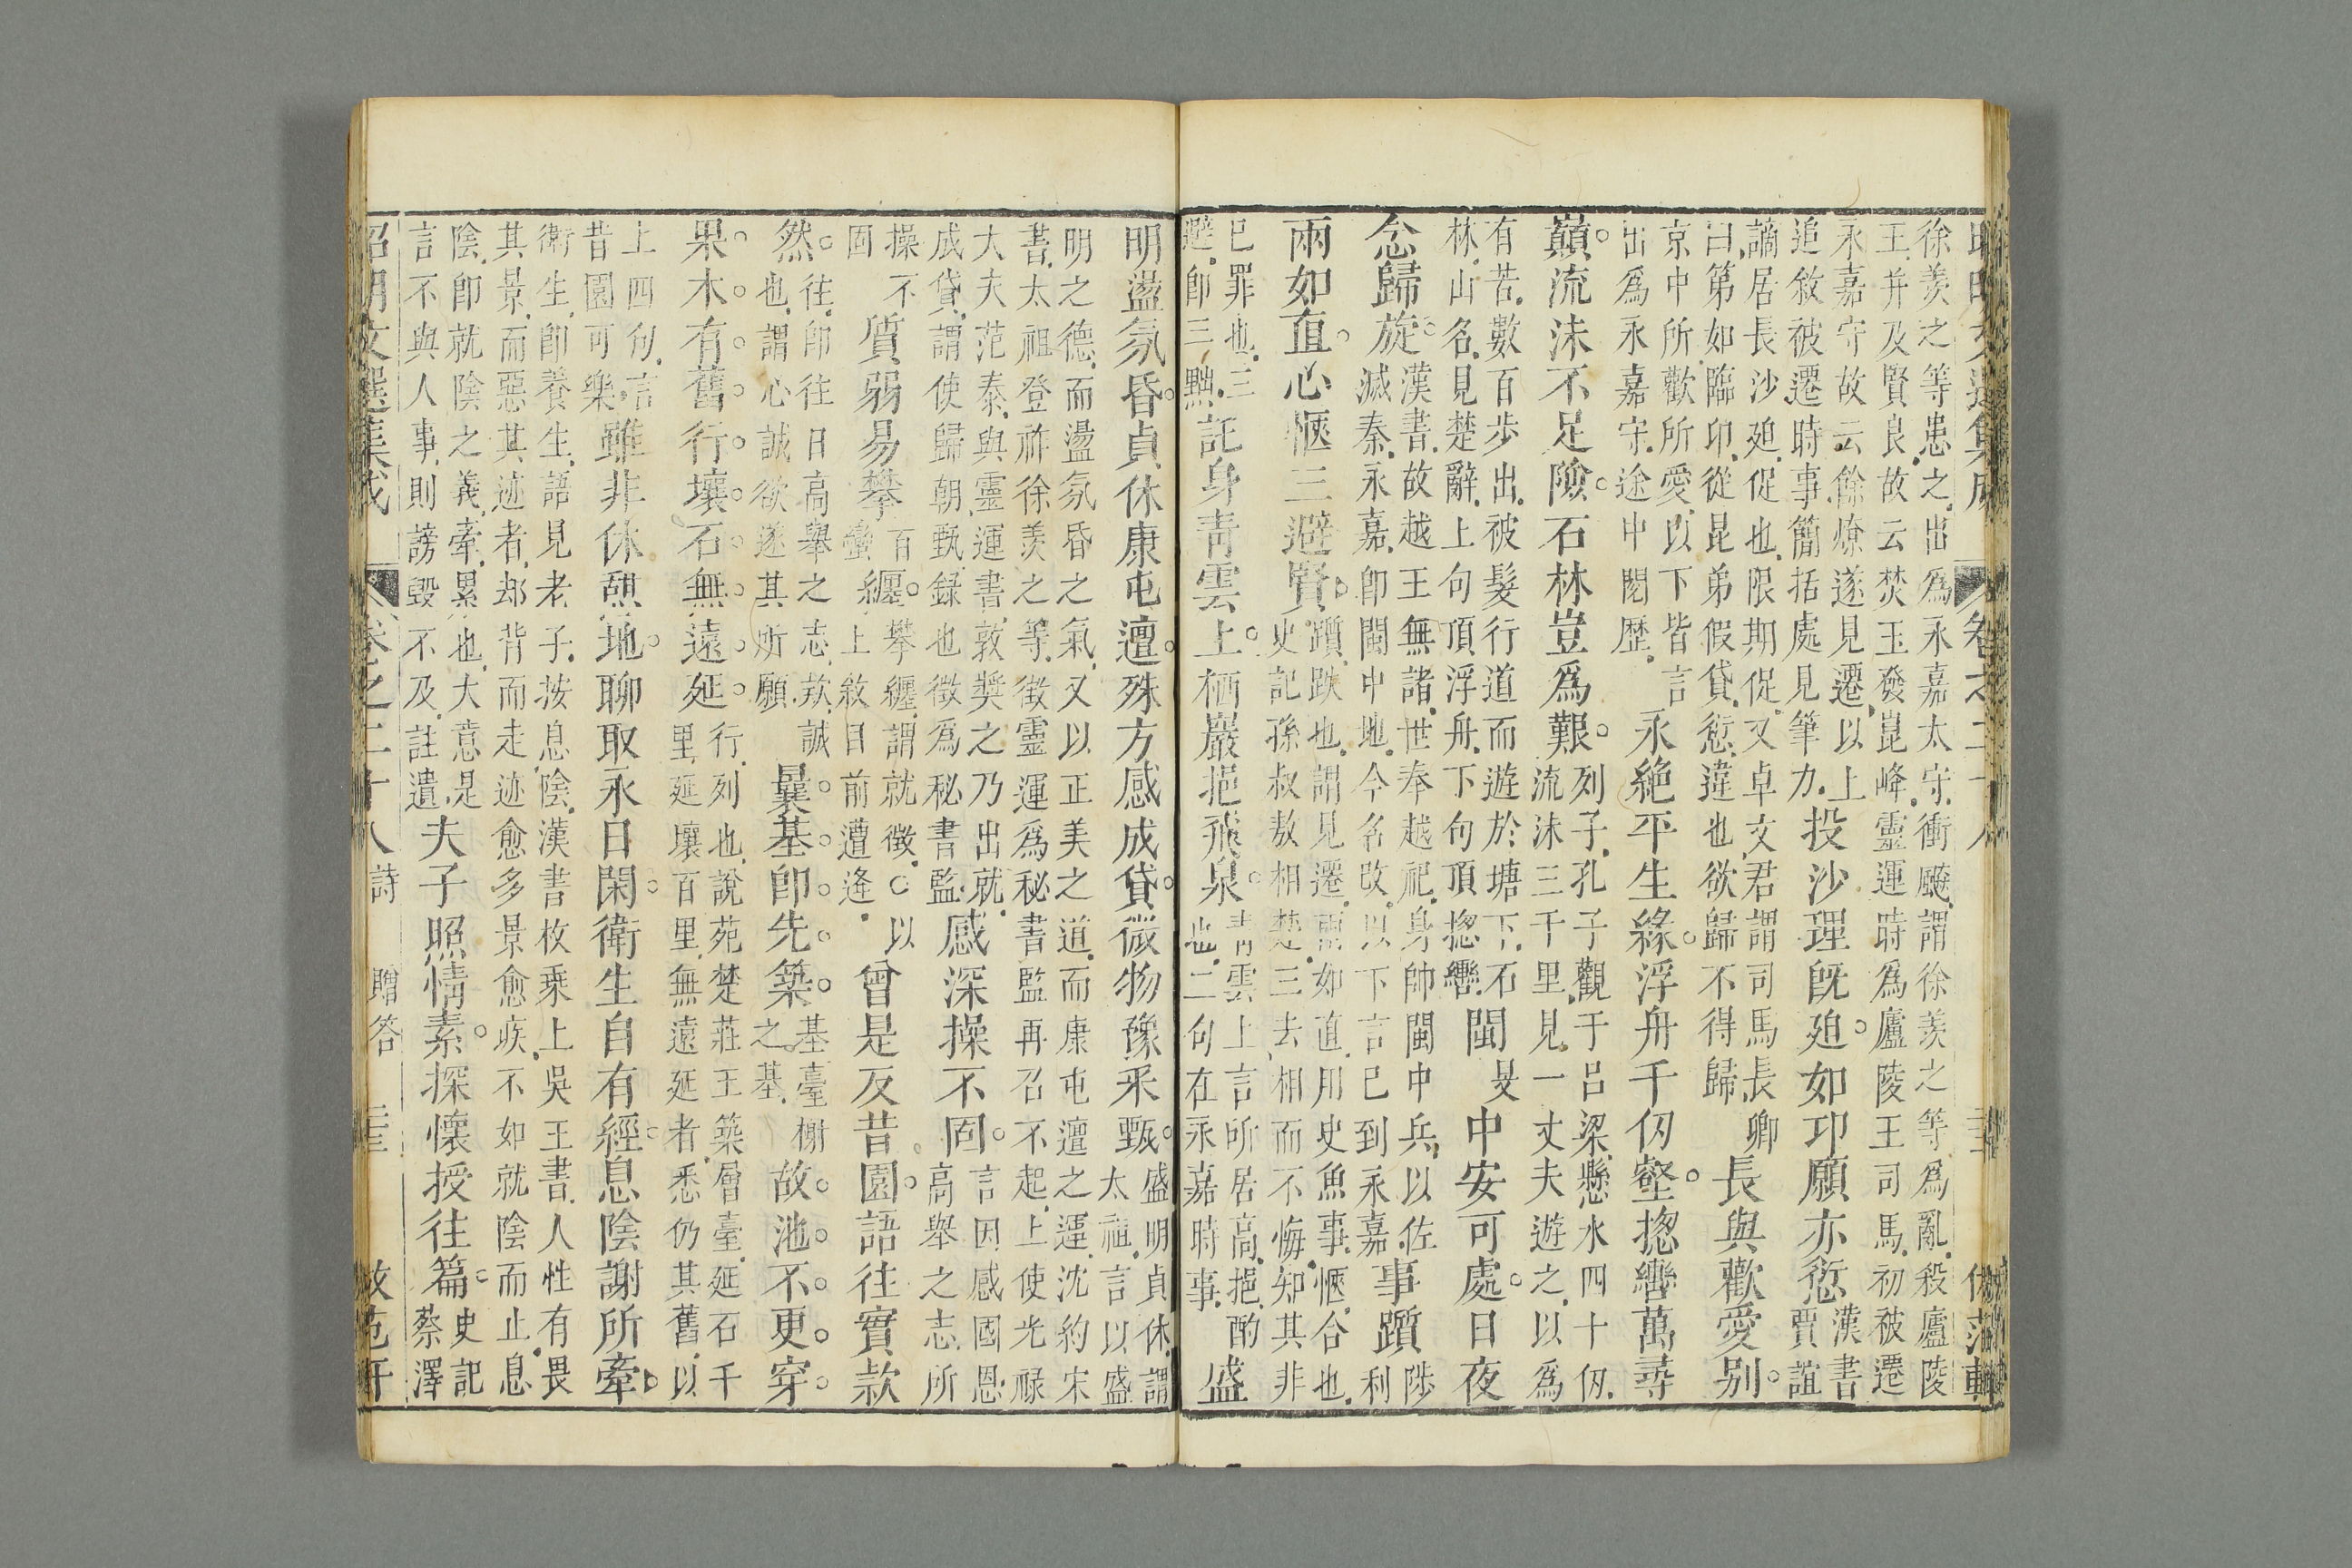 徐羨之等患之出為永嘉太守衝飈謂徐羨之等為亂殺廬陵
王并及賢良故云焚玉發崑峰靈運時為廬陵王司馬初被遷
永嘉守故云餘燎遂見遷以上
追敘被遷時事簡括處見筆力投沙理既廹如卭願亦愆漢書
賈誼
謫居長沙廹促也限期促又卓文君謂司馬長卿
曰第如臨卭從昆弟假貸愆違也欲歸不得歸長與歡愛别
京中所歡所愛以下皆言
出為永嘉守途中閱歷永絶平生緣浮舟千仞壑揔轡萬尋
巔流沫不足險石林豈為艱列子孔子觀于呂梁懸水四十仞
流沫三千里見一丈夫遊之以為
有苦數百步出被髮行道而遊於塘下石
林山名見楚辭上句頂浮舟下句頂揔轡閩旻中安可處日夜
念歸旋漢書故越王無諸世奉越祀身帥閩中兵以佐
滅秦永嘉卽閩中地今名改以下言已到永嘉事躓陟
利
兩如直心愜三避賢躓跌也謂見遷兩如直用史魚事愜合也
史記孫叔敖相楚三去相而不悔知其非
已罪也三
避卽三黜託身青雲上栖巖挹飛泉青雲上言所居高挹酌
也二句在永嘉時事盛
明盪氛昏貞休康屯邅殊方感成貸微物豫采甄盛明貞休謂
太祖言以盛
明之德而盪氛昏之氣又以正美之道而康屯邅之運沈約宋
書太祖登祚徐羨之等徵靈運為秘書監再召不起上使光祿
大夫范泰與靈運書敦奬之乃出就
成貸謂使歸朝甄録也徵為秘書監感深操不固言因感國恩
高舉之志所
操不
固質弱易攀百
蠻纒攀纒謂就徵○以
上敘目前遭逢曾是反昔園語往實款
然往卽往日高舉之志款誠
也謂心誠欲遂其所願曩基卽先築基臺榭
之基故池不更穿
果木有舊行壤石無遠延行列也說苑楚莊王築層臺延石千
里延壤百里無遠延者悉仍其舊以
上四句言
昔園可樂雖非休憩地聊取永日閑衛生自有經息陰謝所牽
衛生卽養生語見老子按息陰漢書枚乘上吳王書人性有畏
其景而惡其迹者却背而走迹愈多景愈疾不如就陰而止息
陰卽就陰之義牽累也大意是
言不與人事則謗毀不及註遺夫子照情素探懷授往篇史記
蔡澤
昭明文選集成 卷之二十八 詩 贈答